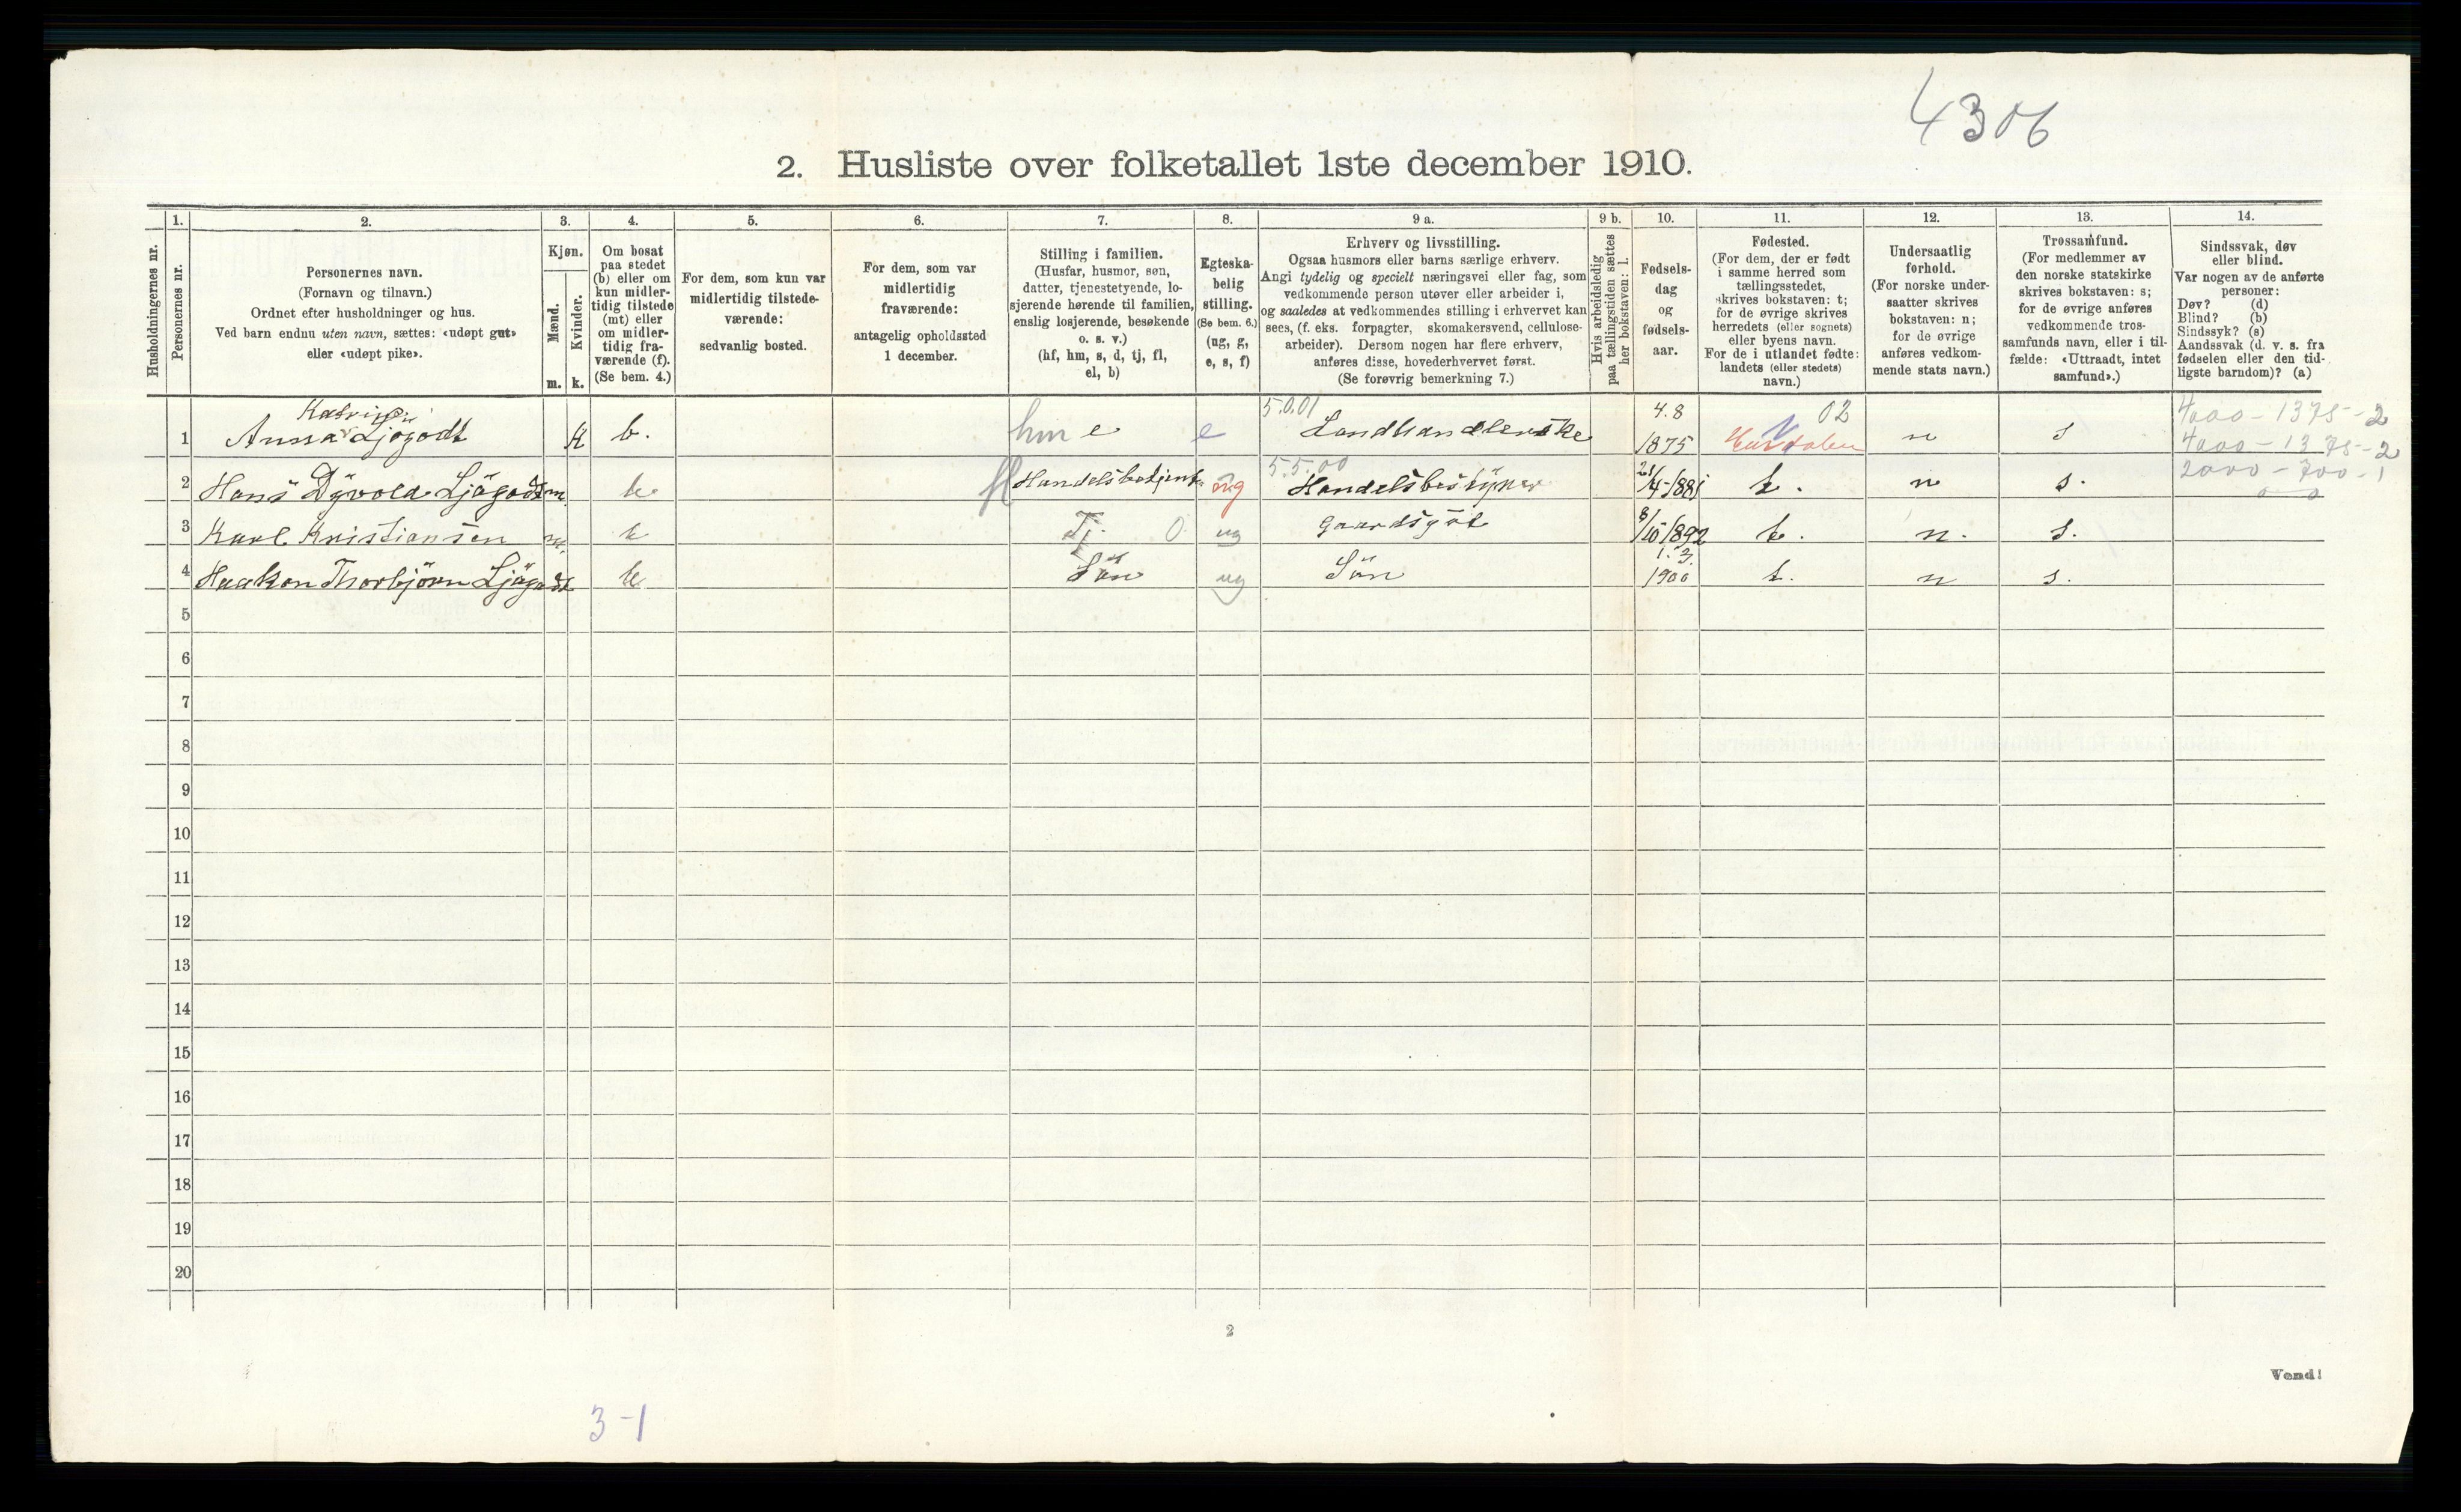 4306
2. Husliste over folketallet 1ste december 1910.
Husholdningernes nr.
1.
Personernes nr.
2.
Personernes navn.
(Fornavn og tilnavn.)
Ordnet efter husholdninger og hus.
Ved barn endnu uten navn, sættes: «udøpt gut»
eller «udøpt pike».
3.
Kjøn.
Mænd.
Kvinder.
m. k.
4.
Om bosat
paa stedet
(b) eller om
kun midler-
tidig tilstede
(mt) eller
om midler-
tidig fra-
værende (f).
(Se bem. 4.)
5.
For dem, som kun var
midlertidig tilstede-
værende:
sedvanlig bosted.
6.
For dem, som var
midlertidig
fraværende:
antagelig opholdssted
1 december.
7.
Stilling i familien.
(Husfar, husmor, søn,
datter, tjenestetyende, lo-
sjerende hørende til familien,
enslig losjerende, besøkende
o. s. v.)
(hf, hm, s, d, tj, fl,
el, b)
8.
Egteska-
belig
stilling.
(Se bem. 6.)
(ug, g,
e, s, f)
9 a.
Erhverv og livsstilling.
Ogsaa husmors eller barns særlige erhverv.
Angi tydelig og specielt næringsvei eller fag, som
vedkommende person utøver eller arbeider i,
og saaledes at vedkommendes stilling i erhvervet kan
sees, (f. eks. forpagter, skomakersvend, cellulose-
arbeider). Dersom nogen har flere erhverv,
anføres disse, hovederhvervet først.
(Se forøvrig bemerkning 7.)
9 b.
Hvis arbeidsledig
paa tællingstiden sættes
her bokstaven: l.
10.
Fødsels-
dag
og
fødsels-
aar.
11.
Fødested.
(For dem, der er født
i samme herred som
tællingsstedet,
skrives bokstaven: t;
for de øvrige skrives
herredets (eller sognets)
eller byens navn.
For de i utlandet fødte:
landets (eller stedets)
navn.)
12.
Undersaatlig
forhold.
(For norske under-
saatter skrives
bokstaven: n;
for de øvrige
anføres vedkom-
mende stats navn.)
13.
Trossamfund.
(For medlemmer av
den norske statskirke
skrives bokstaven: s;
for de øvrige anføres
vedkommende tros-
samfunds navn, eller i til-
fælde: «Uttraadt, intet
samfund».)
14.
Sindssvak, døv
eller blind.
Var nogen av de anførte
personer:
Døv? (d)
Blind? (b)
Sindssyk? (s)
Aandssvak (d. v. s. fra
fødselen eller den tid-
ligste barndom)? (a)
Katrine 5.0.01 4.8 02 4000-1375-2
1 Anna Ljøgodt K b. hm e e Landhandlerske 1875 Hurdalen n s 4000-1375-2
5.5.00 2000-700-1
2 Hans Dyvold Ljøgodt m. b fl Handelsbetjent ug Handelsbestyrer 21/4-1881 t. n s.
3 Karl Kristiansen m. b Tj. 0 ug gaardsgut 8/10 1892 t. n. s.
1. 3.
4 Haakon Thorbjørn Ljøgodt b Søn ug Søn 1900 t. n s.
5
6
7
8
9
10
11
12
13
14
15
16
17
18
19
20
2
Vend!
3-1